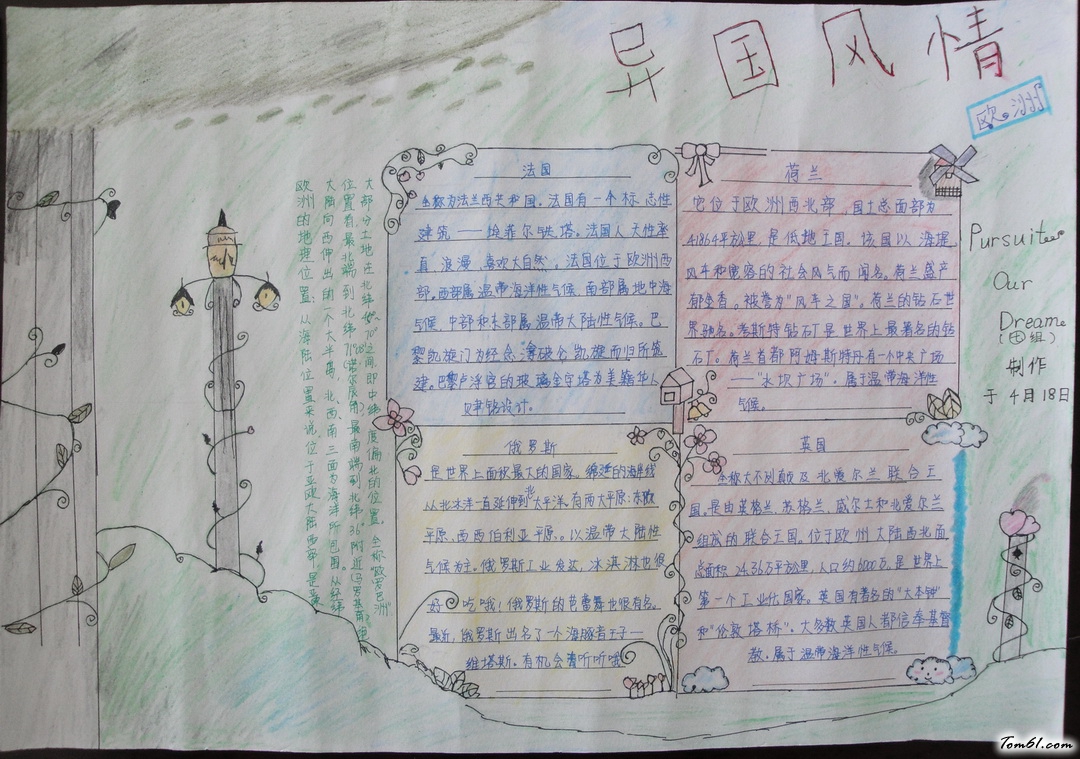 异国风情
欧洲
Pursuit
Our
Dream
(田组)
制作
于4月18日
法国
全称为法兰西共和国。法国有一个标志性
建筑——埃菲尔铁塔。法国人天性率
直,浪漫,喜欢大自然,法国位于欧洲西
部,西部属温带海洋性气候,南部属地中海
气候,中部和东部属温带大陆性气候。巴
黎凯旋门为纪念拿破仑凯旋而归所筑
建。巴黎卢浮宫的玻璃金字塔为美籍华人
贝聿铭设计。
荷兰
它位于欧洲西北部,国土总面部为
41864平方公里,是低地王国。该国以海堤,
风车和宽容的社会风气而闻名。荷兰盛产
郁金香。被誉为"风车之国"。荷兰的钻石世
界驰名。考斯特钻石厂是世界上最著名的钻
石厂。荷兰首都阿姆斯特丹有一个中央广场
——"水坝广场"。属于温带海洋性
气候。
俄罗斯
是世界上面积最大的国家。绵延的海岸线
从北冰洋一直延伸到北太平洋。有两大平原:东欧
平原,西西伯利亚平原。以温带大陆性
气候为主。俄罗斯工业发达,冰淇淋也很
好吃哦!俄罗斯的芭蕾舞也很有名。
最近,俄罗斯出名了一个海豚音王子—
维塔斯。有机会请听听哦
英国
全称大不列颠及北爱尔兰联合王
国。是由英格兰、苏格兰、威尔士和北爱尔兰
组成的联合王国。位于欧州大陆西北面,
总面积24.36万平方公里,人口约6000万,是世界上
第一个工业化国家。英国有著名的"大本钟"
和"伦敦塔桥"。大多数英国人都信奉基督
教。属于温带海洋性气候。
欧洲的地理位置:从海陆位置来说,位于亚欧大陆西部,是亚欧
大陆向西伸出的一个大半岛,北、西、南三面为海洋所包围。从经纬
位置看,最北端到北纬71°08′(诺尔辰角),最南端到北纬36°附近(马罗基角)
大部分土地在北纬 70°之间,即中纬度偏北的位置。全称"欧罗巴洲"
Tom61.com